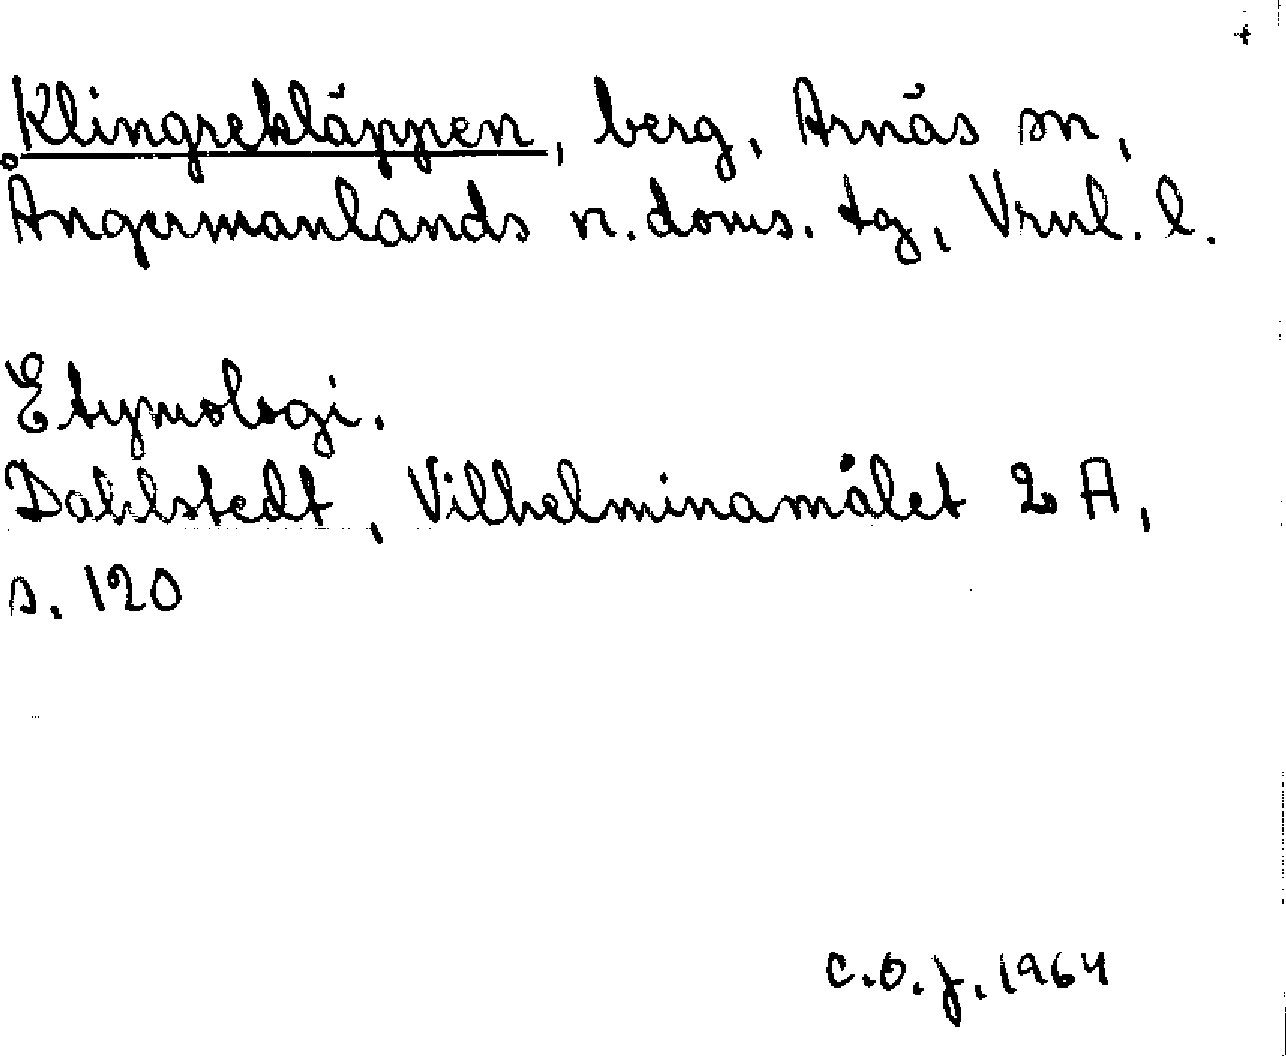 +
Klingrekläppen, berg, Arnäs sn,
Ångermanlands n. doms. tg, Vrnl. l.
Etymologi.
Dahlstedt, Vilhelminamålet 2 A,
s. 120
C.O.J. 1964